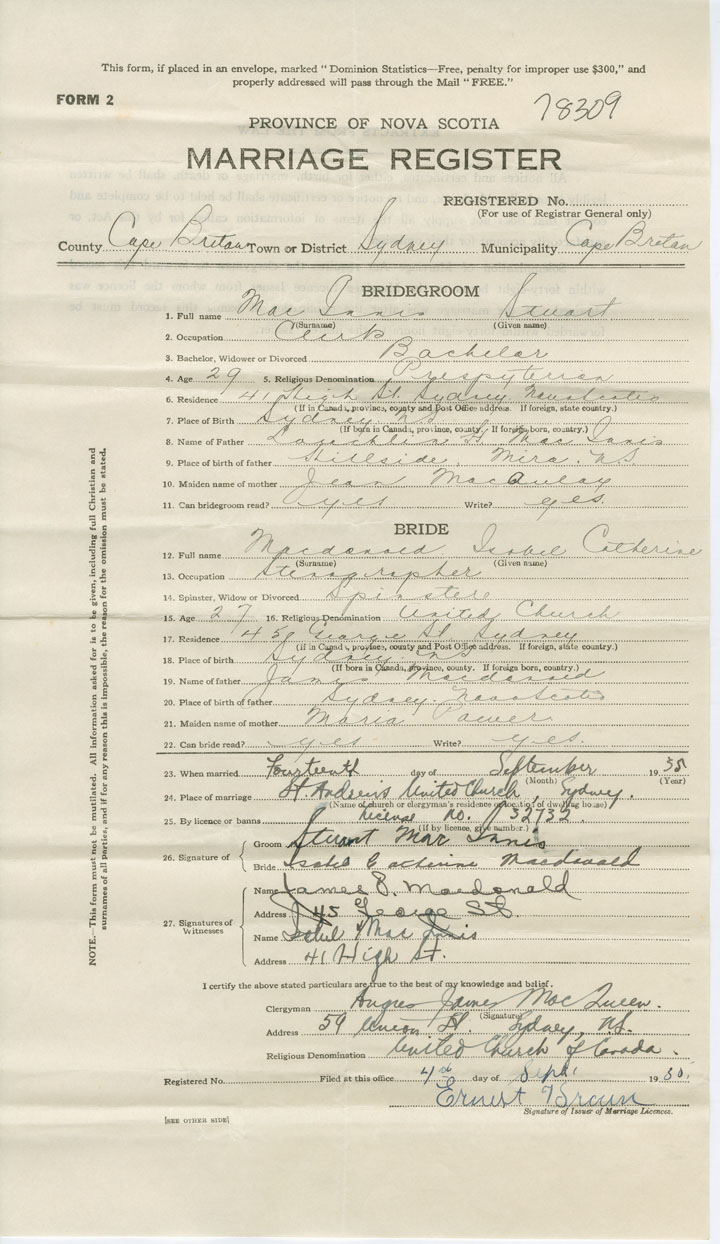 This form, if placed in an envelope, marked "Dominion Statistics—Free, penalty for improper use $300," and
properly addressed will pass through the Mail "FREE."
FORM 2
78309
PROVINCE OF NOVA SCOTIA
MARRIAGE REGISTER
REGISTERED No.
(For use of Registrar General only)
County Cape Breton Town or District Sydney Municipality Cape Breton
BRIDEGROOM
1. Full name Mac Innis Stuart
(Surname) (Given name)
2. Occupation Clerk
3. Bachelor, Widower or Divorced Bachelor
4. Age 29 5. Religious Denomination Presbyterian
6. Residence 41 High St. Sydney Nova Scotia
(If in Canada, province, county and Post Office address. If foreign, state country.)
7. Place of Birth Sydney N.S.
(If born in Canada, province, county. If foreign born, country.)
8. Name of Father Lauchlin Mac Innis
9. Place of birth of father Hillside, Mira. N.S.
10. Maiden name of mother Jean MacAulay
11. Can bridegroom read? yes Write? yes.
BRIDE
12. Full name Macdonald Isobel Catherine
(Surname) (Given name)
13. Occupation Stenographer
14. Spinster, Widow or Divorced Spinster
15. Age 27 16. Religious Denomination United Church
17. Residence George St. Sydney
(If in Canada, province, county and Post Office address. If foreign, state country.)
18. Place of birth Sydney
(If born in Canada, province, county. If foreign born, country.)
19. Name of father James Macdonald
20. Place of birth of father Sydney. Nova Scotia
21. Maiden name of mother Maria Power
22. Can bride read? yes Write? yes.
23. When married Fourteenth day of September 1935
(Month) (Year)
24. Place of marriage St. Andrew's United Church, Sydney.
(Name of church or clergyman's residence or location of dwelling house)
25. By licence or banns License No. 32732
(If by licence, give number.)
26. Signature of
Groom Stuart Mac Innis
Bride Isobel Catherine Macdonald
27. Signatures of Witnesses
Name James B. Macdonald
Address 45 George St.
Name Mac Innis
Address 41 High St.
I certify the above stated particulars are true to the best of my knowledge and belief.
Clergyman Angus James MacQueen.
(Signature)
Address 59 Union St. Sydney, N.S.
Religious Denomination United Church of Canada.
Registered No. Filed at this office 4th day of Sept. 19
Ernest Brown
Signature of Issuer of Marriage Licences.
[SEE OTHER SIDE]
NOTE.—This form must not be mutilated. All information asked for is to be given, including full Christian and
surnames of all parties, and if for any reason this is impossible, the reason for the omission must be stated.